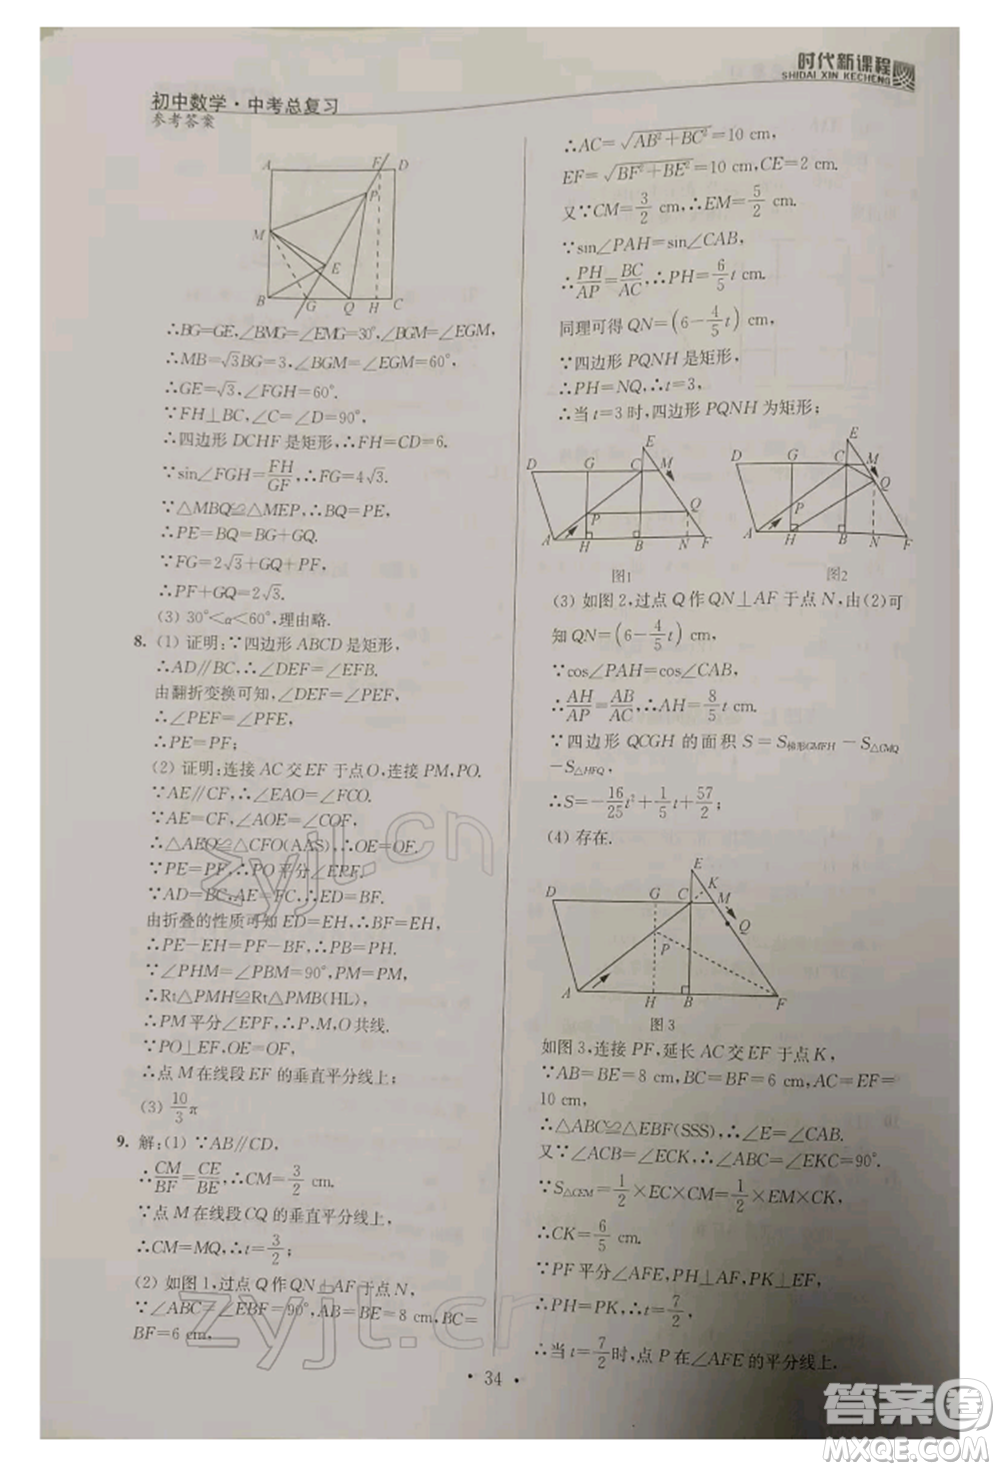 时代新课程
SHIDAI XIN KECHENG
初中数学·中考总复习
参考答案
A F D
P
M
E
B G Q H C
∴BG=GE,∠BMG=∠EMG=30°,∠BGM=∠EGM,
∴MB=√3BG=3,∠BGM=∠EGM=60°,
∴GE=√3,∠FGH=60°.
∵FH⊥BC,∠C=∠D=90°,
∴四边形 DCHF 是矩形,∴FH=CD=6.
∵sin∠FGH=FH/GF,∴FG=4√3.
∵△MBQ≌△MEP,∴BQ=PE,
∴PE=BQ=BG+GQ.
∵FG=2√3+PE+GQ,
∴PF+GQ=2√3.
(3) 30°<α<60°,理由略.
8. (1) 证明:∵四边形 ABCD 是矩形,
∴AD∥BC,∴∠DEF=∠EFB.
由翻折变换可知,∠DEF=∠PEF,
∴∠PEF=∠PFE,
∴PE=PF;
(2) 证明:连接 AC 交 EF 于点 O,连接 PM,PO.
∵AE∥CF,∴∠EAO=∠FCO.
∵AE=CF,∠AOE=∠COF,
∴△AEO≌△CFO(AAS),∴OE=OF.
∵PE=PF,∴PO 平分∠EPF.
∵AD=BC,AE=FC,∴ED=BF.
由折叠的性质可知 ED=EH,∴BF=EH,
∴PE-EH=PF-BF,∴PB=PH.
∵∠PHM=∠PBM=90°,PM=PM,
∴Rt△PMH≌Rt△PMB(HL),
∴PM 平分∠EPF,∴P,M,O 共线.
∵PO⊥EF,OE=OF,
∴点 M 在线段 EF 的垂直平分线上;
(3) 10/3 π
9. 解:(1) ∵AB∥CD,
∴CM/BF=CE/BE,∴CM=3/2 cm.
∵点 M 在线段 CQ 的垂直平分线上,
∴CM=MQ,∴t=3/2;
(2) 如图 1,过点 Q 作 QN⊥AF 于点 N,
∵∠ABC=∠EBF=90°,AB=BE=8 cm,BC=
BF=6 cm,
∴AC=√(AB²+BC²)=10 cm,
EF=√(BF²+BE²)=10 cm,CE=2 cm.
又∵CM=3/2 cm,∴EM=5/2 cm.
∵sin∠PAH=sin∠CAB,
∴PH/AP=BC/AC,∴PH=6/5 t cm.
同理可得 QN=(6-4/5 t) cm,
∵四边形 PQNH 是矩形,
∴PH=NQ,∴t=3,
∴当 t=3时,四边形 PQNH 为矩形;
D G C E M
P Q
A H B N F
图1
D G C E M
Q
P
A H B N F
图2
(3) 如图 2,过点 Q 作 QN⊥AF 于点 N,由(2)可
知 QN=(6-4/5 t) cm,
∵cos∠PAH=cos∠CAB,
∴AH/AP=AB/AC,∴AH=8/5 t cm.
∵四边形 QCGH 的面积 S=S梯形GMFH-S△CMQ
-S△HFQ,
∴S=-16/25 t²+1/5 t+57/2;
(4) 存在.
E
K
D G C M
Q
P
A H B F
图 3
如图 3,连接 PF,延长 AC 交 EF 于点 K,
∵AB=BE=8 cm,BC=BF=6 cm,AC=EF=
10 cm,
∴△ABC≌△EBF(SSS),∴∠E=∠CAB.
又∵∠ACB=∠ECK,∴∠ABC=∠EKC=90°.
∵S△CEM=1/2×EC×CM=1/2×EM×CK,
∴CK=6/5 cm.
∵PF 平分∠AFE,PH⊥AF,PK⊥EF,
∴PH=PK,∴t=7/2,
∴当 t=7/2时,点 P 在∠AFE 的平分线上.
·34·
zyjl.cn
zyjl.cn
答案圈
MXQE.COM